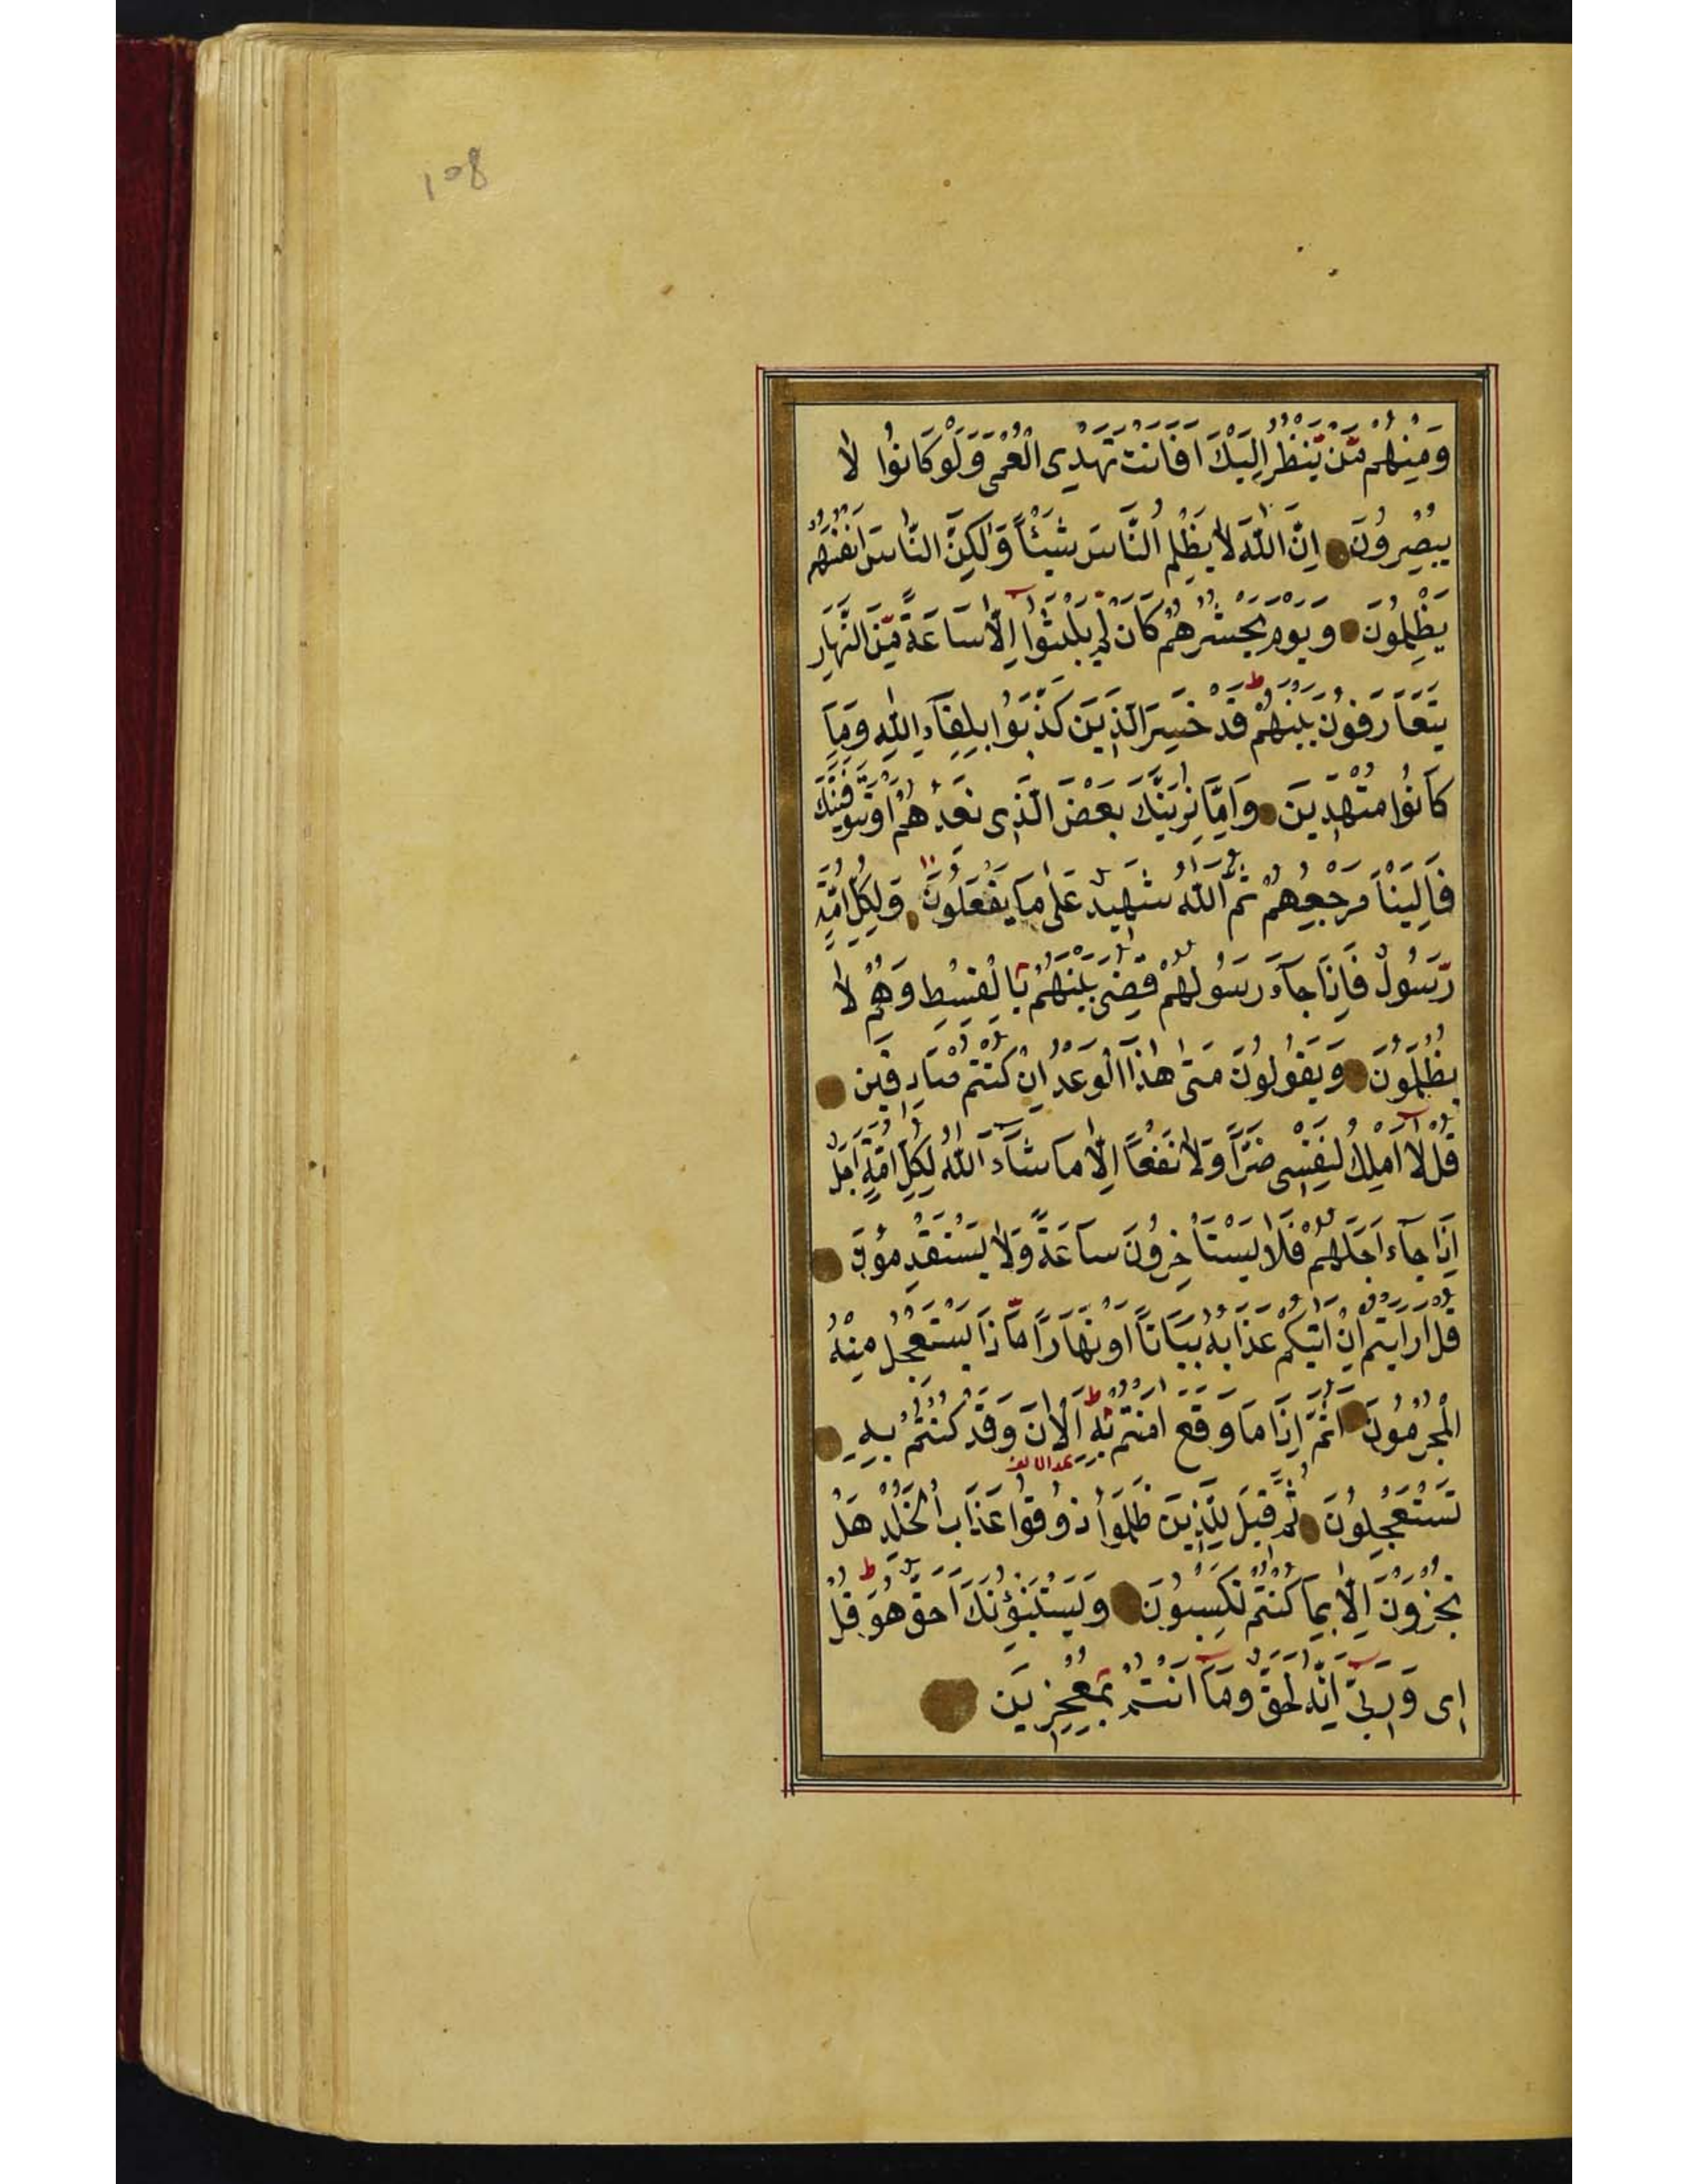 108
وَمِنْهُمْ مَّنْ يَّنْظُرُ اِلَيْكَ اَفَاَنْتَ تَهْدِى الْعُمْىَ وَلَوْ كَانُوا لَا
يُبْصِرُونَ اِنَّ اللّٰهَ لَا يَظْلِمُ النَّاسَ شَيْئًا وَّلٰكِنَّ النَّاسَ اَنْفُسَهُمْ
يَظْلِمُونَ وَيَوْمَ يَحْشُرُهُمْ كَاَنْ لَمْ يَلْبَثُوا اِلَّا سَاعَةً مِّنَ النَّهَارِ
يَتَعَارَفُونَ بَيْنَهُمْ قَدْ خَسِرَ الَّذِينَ كَذَّبُوا بِلِقَآءِ اللّٰهِ وَمَا
كَانُوا مُهْتَدِينَ وَاِمَّا نُرِيَنَّكَ بَعْضَ الَّذِى نَعِدُهُمْ اَوْ نَتَوَفَّيَنَّكَ
فَاِلَيْنَا مَرْجِعُهُمْ ثُمَّ اللّٰهُ شَهِيدٌ عَلٰى مَا يَفْعَلُونَ وَلِكُلِّ اُمَّةٍ
رَّسُولٌ فَاِذَا جَآءَ رَسُولُهُمْ قُضِىَ بَيْنَهُمْ بِالْقِسْطِ وَهُمْ لَا
يُظْلَمُونَ وَيَقُولُونَ مَتٰى هٰذَا الْوَعْدُ اِنْ كُنْتُمْ صَادِقِينَ
قُلْ لَا اَمْلِكُ لِنَفْسِى ضَرًّا وَّلَا نَفْعًا اِلَّا مَا شَآءَ اللّٰهُ لِكُلِّ اُمَّةٍ اَجَلٌ
اِذَا جَآءَ اَجَلُهُمْ فَلَا يَسْتَاْخِرُونَ سَاعَةً وَّلَا يَسْتَقْدِمُونَ
قُلْ اَرَاَيْتُمْ اِنْ اَتٰيكُمْ عَذَابُهُ بَيَاتًا اَوْ نَهَارًا مَّاذَا يَسْتَعْجِلُ مِنْهُ
الْمُجْرِمُونَ اَثُمَّ اِذَا مَا وَقَعَ اٰمَنْتُمْ بِهِ آلْاٰنَ وَقَدْ كُنْتُمْ بِهِ
تَسْتَعْجِلُونَ ثُمَّ قِيلَ لِلَّذِينَ ظَلَمُوا ذُوقُوا عَذَابَ الْخُلْدِ هَلْ
تُجْزَوْنَ اِلَّا بِمَا كُنْتُمْ تَكْسِبُونَ وَيَسْتَنْبِؤُنَكَ اَحَقٌّ هُوَ قُلْ
اِى وَرَبِّى اِنَّهُ لَحَقٌّ وَمَا اَنْتُمْ بِمُعْجِزِينَ